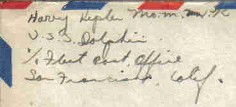 Harry Hepler Mo.M.M.
U.S.S. Dolphin
℅ Fleet Post Office
San Francisco, Calif.